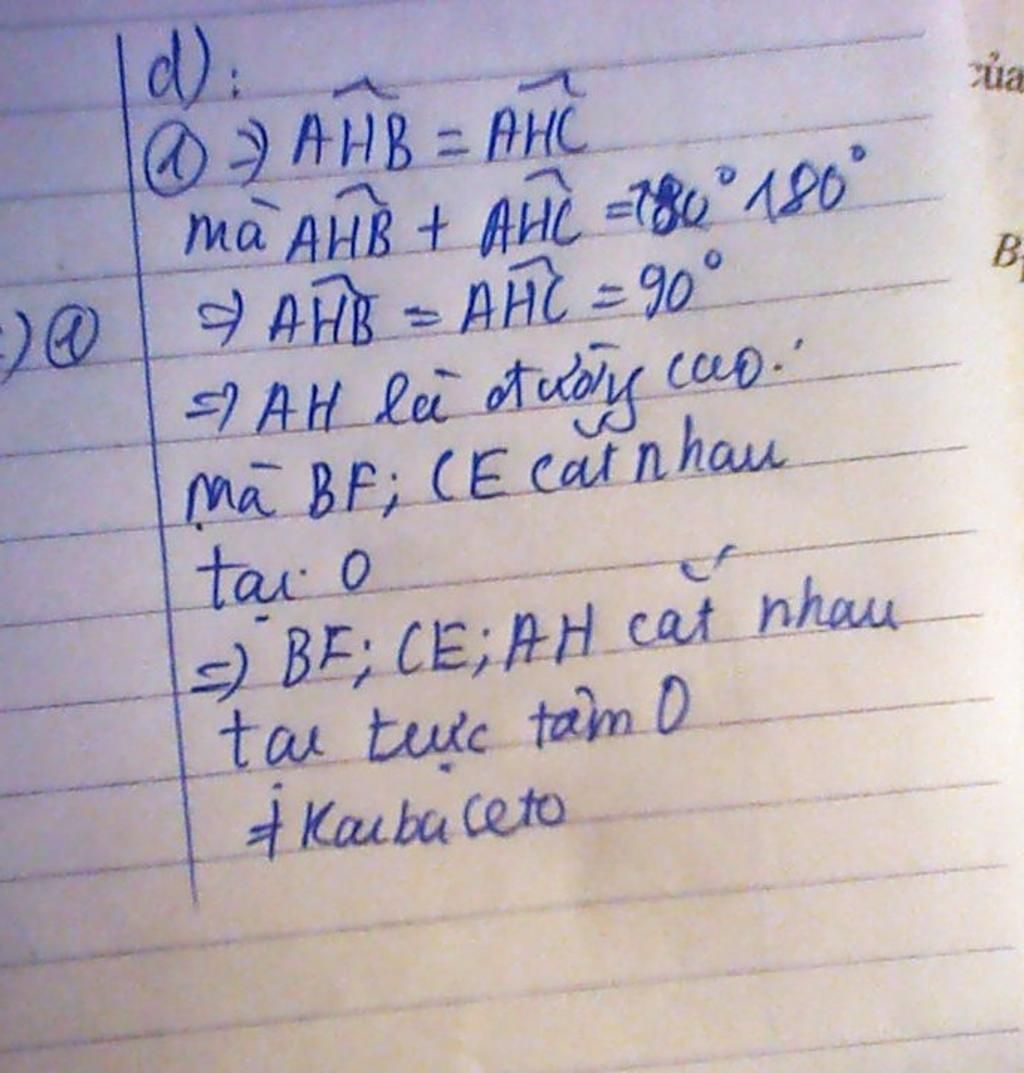 d):
① ⇒ AHB = AHC
của
mà AHB + AHC = 180° 180°
⇒ AHB = AHC = 90°
B
①
⇒ AH là đường cao.
mà BF; CE cắt nhau
tại O
⇒ BF; CE; AH cắt nhau
tại trực tâm O
Kaibaceto